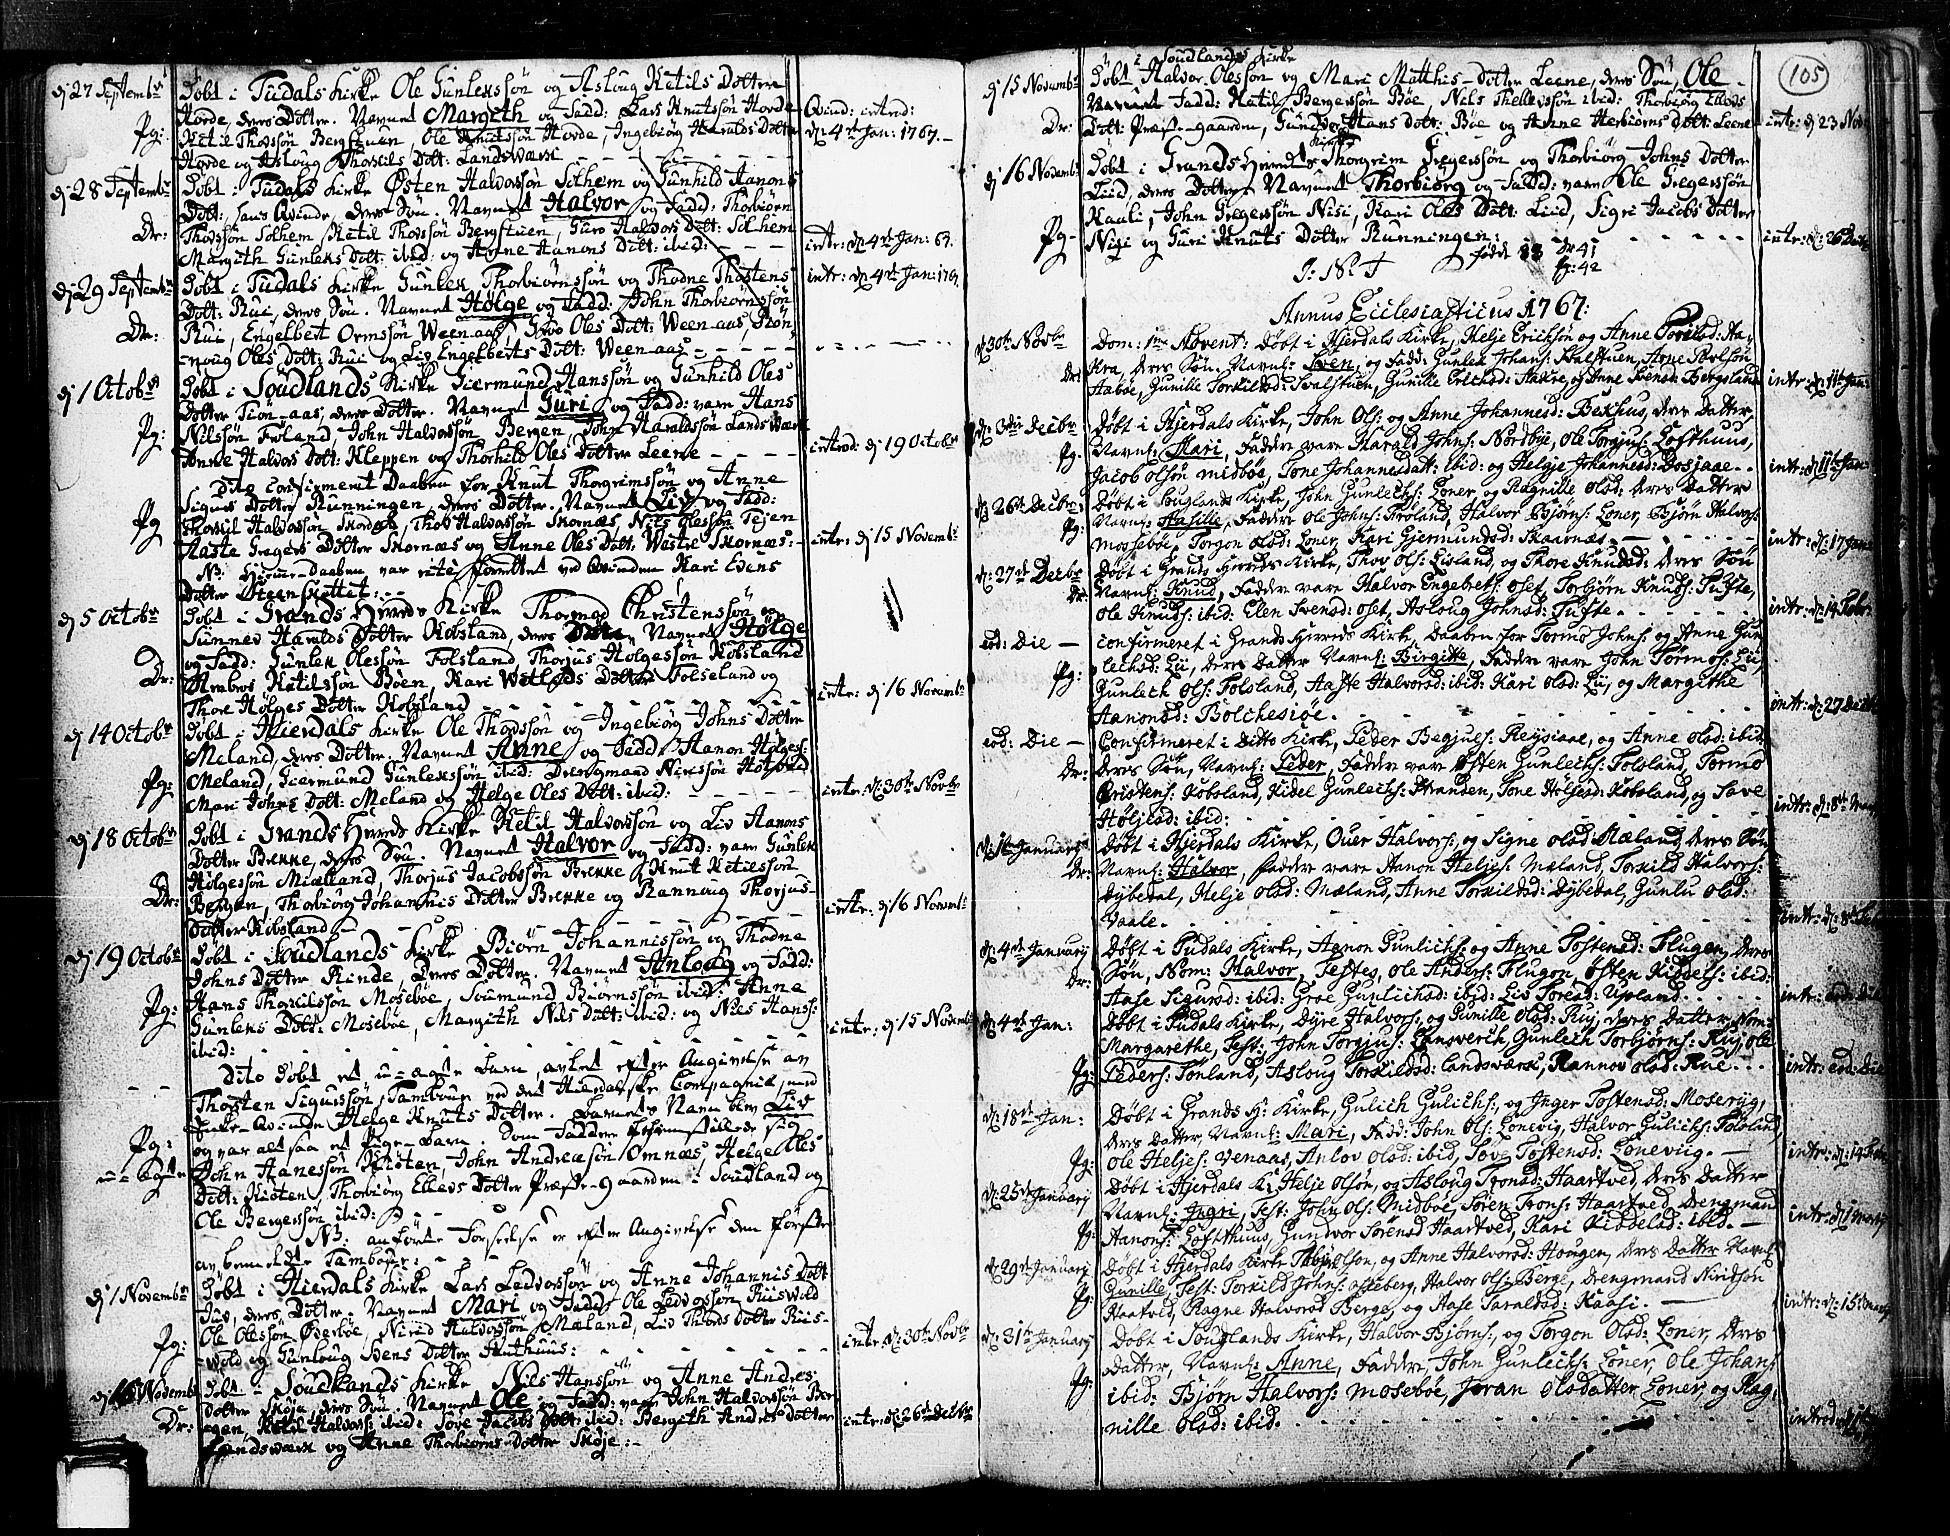 dj 27 Septembr
Døbt i Tudals Kirke Ole Gunlekssøn og Asloug Ketils Dotter
Horde, deres Dotter. Navnet Margith og Fadd: Lars Knutssøn Horde
Pg: Ketil Thovssøn Bergstuen, Ole Knutssøn Horde, Ingebiørg Haralds Dotter
Horde og Asloug Thorkils Dott: Landswærk
Qvind: introd:
dj 4de Jan: 1767.
dj 28 Septembr
Døbt i Tudals Kirke Østen Halvorssøn Solhem og Gunhild Hanons
Dott: hans Qvinde, deres Søn. Navnet Halvor og Fadd: Thorbiørn
Dr: Thovssøn Solhem, Ketil Thovssøn Bergstuen, Guro Halvors Dott: Solhem
Margith Gunleks Dott: ibid: og Anne Hanons Dott: ibid:
intr: dj 4de Jan: 67.
dj 29 Septembr
Døbt i Tudals Kirke Gunlek Thorbiørnssøn og Thodne Thostens
Dott: Rui, deres Søn. Navnet Hølge og Fadd: John Thorbiørnssøn
Dr: Rui, Engelbert Ormssøn Weenaas, Oles Dott: Weenaas, Røn-
noug Oles Dott: Rui og Liv Engelberts Dott: Weenaas
intr: dj 4de Jan: 1767.
dj 1 Octobr
Døbt i Soudlands Kirke Giermund Hanssøn og Gunhild Oles
Dotter Tiønaas, deres Dotter. Navnet Guri og Fadd: vare Hans
Pg: Nilssøn Frøland, John Halvorssøn Bergen, John Haraldssøn Landswærk
Anne Halvors Dott: Kleppen og Thorhild Oles Dotter Leene
introd: dj 19 Octobr
Dito Confirmeret Daaben for Knut Thorgrimssøn og Anne
Sigurs Dotter Runningen, deres Dotter. Navnet Liv og Fadd:
Pg Thorkil Halvorssøn Skornæs, Thov Halvorssøn Skornæs, Nils Olessøn Tejen
Aaste Gregers Dotter Skornæs og Anne Oles Dott: Skornæs:
NB. Hiemme-Daaben var rite forrettet ved Qvinden Kari Evens
Dotter
intr: dj 15 Novembr
dj 5 Octobr
Døbt i Grands Herreds Kirke Thormod Christenssøn og
Sunnev Haralds Dotter Kobsland, deres Søn. Navnet Hølge
Dr: og Fadd: Gunlek Olessøn Folsland, Thorjus Hølgessøn Kobsland
Ambros Ketilssøn Bøen, Kari Dotter Folseland og
Thore Hølges Dotter Kobsland
intr: dj 16 Novembr
dj 14 Octobr
Døbt i Hierdals Kirke Ole Thovssøn og Ingebiørg Johns Dotter
Meland, deres Dotter. Navnet Anne og Fadd: Hanon Hølges:
Pg: Meland, Giermund Gunlekssøn ibid: Drengmand Niridssøn
Mari Johns Dott: Meland og Helge Oles Dott: ibid:
intr. dj 30te Novbr
dj 18 Octobr
Døbt i Grands Herreds Kirke Ketil Halvorssøn og Liv Hanons
Dotter Brekke, deres Søn. Navnet Halvor og Fadd: vare Gunlek
Dr: Hølgessøn Mieland, Thorjus Jacobssøn Brekke, Knut Ketilssøn
Bergen, Thorbiørg Johannis Dotter Brekke og Rannoug Thorjus
Dotter Kobsland
intr: dj 16 Novembr
dj 19 Octobr
Døbt i Soudlands Kirke Biørn Johannissøn og Thodne
Johns Dotter Rinde, deres Dotter. Navnet Anloug og Fadd:
Pg: Hans Thorkilssøn Mosebøe, Soumund Biørnssøn ibid: Anne
Gunleks Dott: Mosebøe, Margith Nils Dott: ibid: og Niels Hans:
ibid:
intr: dj 15 Novembr
Dito Døbt et u-ægte Barn, avlet efter Angivelse av
Thorsten Sigurssøn, Tambour ved det Hierdalske Compagnie, med
Helge Knuts Dotter. Barnets Navn blev Liv
Pg: og var altsaa et Pige-Barn. Som Faddere fremstillede sig
u-ægte John Hanessøn Kioten, John Andreasøn Omnæs, Helge Oles
Dott: Kioten, Thorbiørg Ellevs Dotter Præste-gaarden i Soudland og
Ole Bergerssøn ibid:
NB: anførte Forseelse er efter Angivelse den første
av bemeldte Tambour:
dj 1 Novembr
Døbt i Hierdals Kirke Lars Ledvorssøn og Anne Johannis Dott
deres Dotter. Navnet Mari og Fadd: Ole Ledvorssøn Riiswold
Pg: Ole Olessøn Øverbøe, Nirid Halvorssøn Mæland, Liv Thords Dotter Riis-
wold og Gunloug Bens Dotter
intr: dj 30te Novbr
dj 15 Novembr
Døbt i Soudlands Kirke Nils Hanssøn og Anne Andres
Dotter Skøje, deres Søn. Navnet Ole og Fadd: vare John Halvorssøn Ber-
Dr: egen, Ketil Halvors: ibid: Tove Jacobs Dott: ibid: Bergith Andres Dotter
Landswærk og Anne Thorbiørns Dotter Skøje:
intr: dj 26te Decbr
105
i Soudlands Kirke
dj 15 Novembr
Døbt Halvor Olessøn og Mari Matthis-Dotter Leene, deres Søn, Ole
Fadd: Ketil Bergerssøn Bøe, Nils Thellefssøn ibid: Thorbiørg Ellevs
Dr: Dott: Præste-gaarden, Gundvor Hans Dott: Bøe og Anne Herbiørns Dott: Leene
intr: dj 23 Nov
dj 16 Novembr
Døbt i Grands Herreds Kirke Thorgrim Gregerssøn og Thorbiørg Johns Dotter
Liid, deres Dotter. Navnet Thorbiørg og Fadd: vare Ole Gregerssøn
Kauli, John Gregerssøn Nisi, Kari Oles Dott: Liid, Sigri Jacobs Dotter
Pg Nisi og Guri Knuts Dotter Runningen:
intr: dj 26 Decbr
Fødde 83 Dr: 41
Pg: 42
J: N: J
Annus Ecclesiasticus 1767:
dj 30te Novbr
Dom: 1ma Advent: Døbt i Hjerdals Kirke, Helje Erichsøn og Anne Torkilsd: Aa-
kra, deres Søn, Navnl: Even, og Fadd: Gunlek Johans: Svalstuen, Arne
Dr: Aabøe, Gunille Torkildsd: Svalstuen, Gunille Erichsd: Aakre, og Anne Svensd: Bergsland
intr: dj 11te Jan:
dj 3die Decbr
Døbt i Hjerdals Kirke, John Ols: og Anne Johannesd: Bekhus, deres Datter,
Pg. Navnl: Mari, Faddre vare Harald Johns: Nordbye, Ole Torgjus: Lofthuus,
Jacob Olsøn Midbøe, Tone Johannesdatt: ibid: og Helgje Johannesd: Gosjaae.
intr: dj 11te Jan:
dj 26te Decbr:
Døbt i Souglands Kirke, John Gunlechs: Loner, og Ragnille Olsd: deres Datter
Pg: Navnl: Aasille, Faddre Ole Johns: Froland, Halvor Bjørns: Loner, Bjørn Halvors:
Mossebøe, Torgon Olsd: Loner, Kari Gjermundsd: Skaarnæs.
intr: dj 17 Janr
dj 27de Decbr
Døbt i Grands Herreds Kirke, Thov Ols: Lisland, og Thore Knudsd: deres Søn
Dr: Navnl: Knud, Faddre vare Halvor Engebrets: Oset, Torbjørn Knuds: Tufte,
Ole Knuds: ibid: Elen Svensd: Oset, Asloug Johnsd: Tufte.
intr: dj 14 Febr:
eod: Die —
Confirmeret i Grands Herreds Kirke, Daaben for Tormo Johns: og Anne Gun-
lechsd: Lii, deres Datter Navnl: Birgitte, Faddre vare John Tormos: Lii,
Pg: Gunlech Ols: Folsland, Aaste Halvorsd: ibid: Kari Olsd: Lii, og Margithe
Aanonsd: Bolchesiøe.
intr: dj 27 Decbr
eod: Die —
Confirmeret i Ditto Kirke, Peder Begjues: Reysiaae, og Anne Olsd: ibid
Dr: Deres Søn, Navnl: Peder, Faddre vare Østen Gunlechs: Folsland, Tormo
Cristens: Kobsland, Kidel Gunlechs: Stranden, Tone Höljesd: Kobsland, og Tave
Höljesd: ibid:
intr: dj 8de
dj 1te January
Døbt i Hjerdals Kirke, Ouer Halvors: og Signe Olsd: Mæland, deres Søn
Dr: Navnl: Halvor, Faddre vare Aanon Heljes: Mæland, Torkild Halvors:
Dybedal, Helje Olsd: Mæland, Anne Torkildsd: Dybedal, Gunlu Olsd:
Vaale.
intr: dj 8de Febr
dj 4de January
Døbt i Tudals Kirke, Agnon Gunlichs: og Anne Tostensd: Flugen, deres
Dr: Søn, Nom: Halvor, Testes, Ole Anders: Flugon, Østen Kiddels: ibid:
Aase Sigursd: ibid: Groe Gunlichsd: ibid: Liv Toresd: Upland.
intr: eod: Die
dj 4de Jan:
Døbt i Tudals Kirke, Dyre Halvors: og Gunille Olsd: Ruj, deres Datter, Nom:
Margarethe, Test: John Torgjus: Lonsverch, Gunlech Torbjørns: Ruj, Ole
Pg: Peders: Tonland, Asloug Torkildsd: Landsværk, Rannov Olsd: Rue.
intr: eod: Die
dj 18de Jan:
Døbt i Grands H: Kirke, Gulich Gulichs:, og Inger Tostensd: Moseryg,
deres Datter, Navnl: Mari, Fadd: John Ols: Lonevig, Halvor Gulichs: Folsland,
Pg: Ole Heljes: Venaas, Anlov Olsd: ibid, Tove Tostensd: Loneviig.
intr: dj 14 Febr
dj 25de January
Døbt i Hjerdals K: Helje Olsøn, og Asloug Tronsd: Haartved, deres Datter
Navnl: Ingri, Test: John Ols: Midbøe, Søren Trons: Haartved, Drengmand
Pg: Aanons: Lofthuus, Gundvor Sørensd Haartved, Kari Kiddelsd: ibid.
intr: dj 1 Marty
dj 29de January
Døbt i Hjerdals Kirke Olsøn, og Anne Halvorsd: Hougen, deres Datter Navnl
Pg: Gunille, Test: Torkild Johns: Osseberg, Halvor Ols: Berge, Drengmand Niridsøn
Haatved, Ragne Halvorsd Berge, og Aase Taraldsd: Kaasi.
intr: dj 15 Marty
dj 31te January
Døbt i Souglands Kirke, Halvor Bjørns:, og Torgon Olsd: Loner, deres
Pg: Datter, Navnl: Anne, Faddre, John Gunlechs: Loner, Ole Johans
ibid: Bjørn Halvors: Mosebøe, Joran Olsdatter Loner, og Rag-
nille Olsd: ibid.
introd: